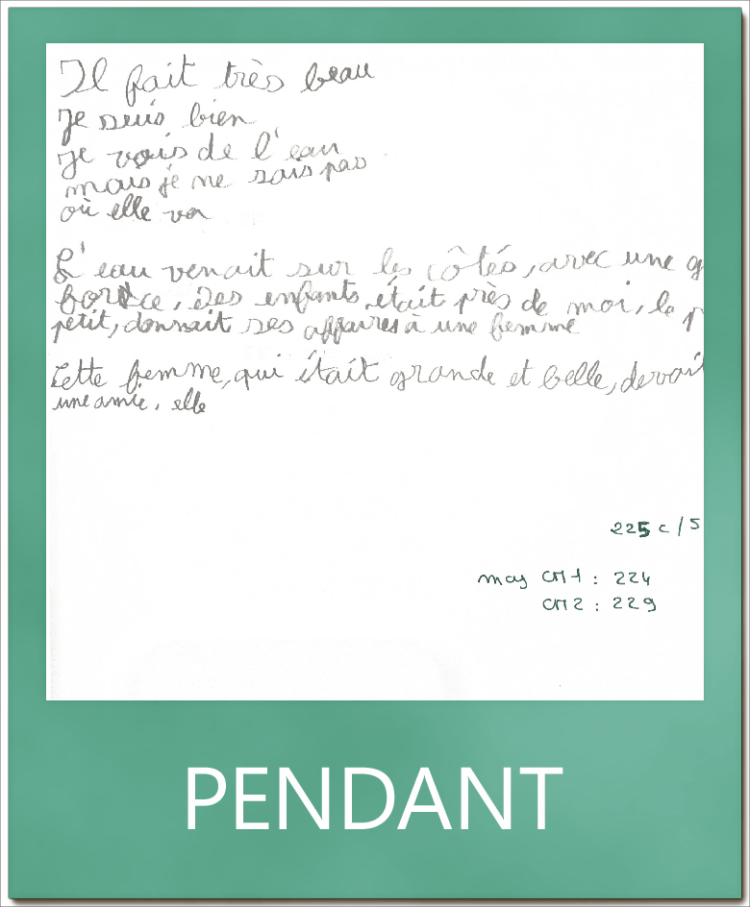 Il fait très beau
Je suis bien
Je vois de l'eau
mais je ne sais pas
où elle va
L'eau venait sur les côtés, avec une g
force, Des enfants était près de moi, le p
petit, donnait ses affaires à une femme
Cette femme, qui était grande et belle, devait
une amie, elle
225 c/5
moy CM1 : 224
CM2 : 229
PENDANT